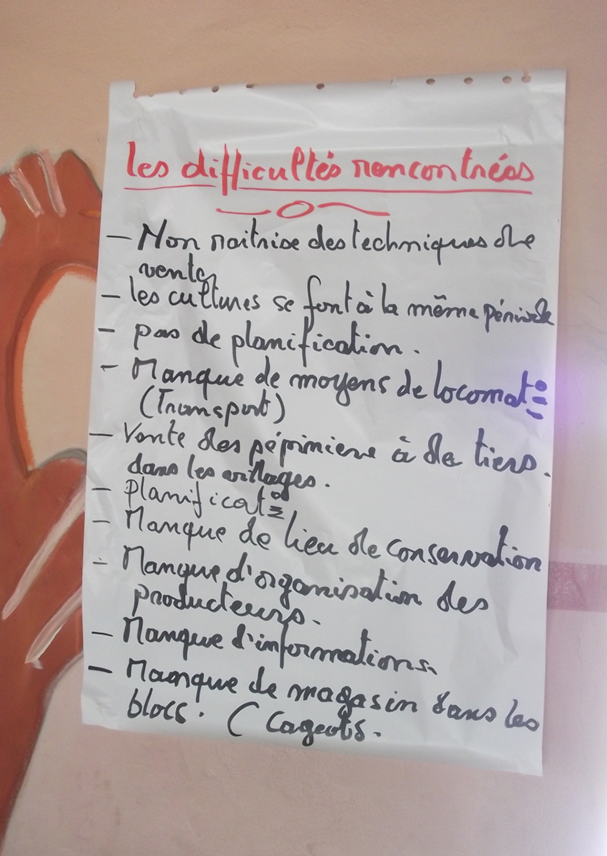 les difficultés rencontrées
- Non maitrise des techniques de
vente
- les cultures se font à la même période
- pas de planification.
- Manque de moyens de locomat°
(Transport)
- Vente des pépiniere à de tiers.
dans les villages.
- planificat°
- Manque de lieu de conservation
- Manque d'organisation des
producteurs.
- Manque d'informations.
- Manque de magasin dans les
blocs. ( Cageots.